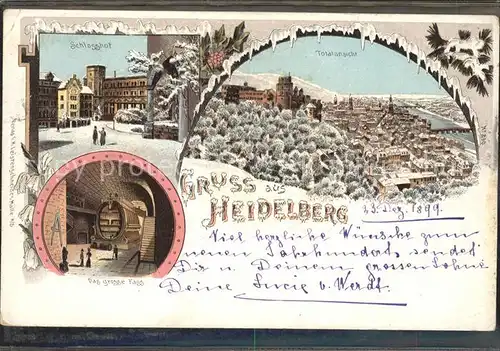 Schlosshof
Totalansicht
Gruss aus
Heidelberg
Das grosse Fass
23. Dez. 1899.
Viel herzliche Wünsche zum
neuen Jahrhundert, sendet
Dir u Deinem grossen Sohne
Deine Lucie v. Werdt.